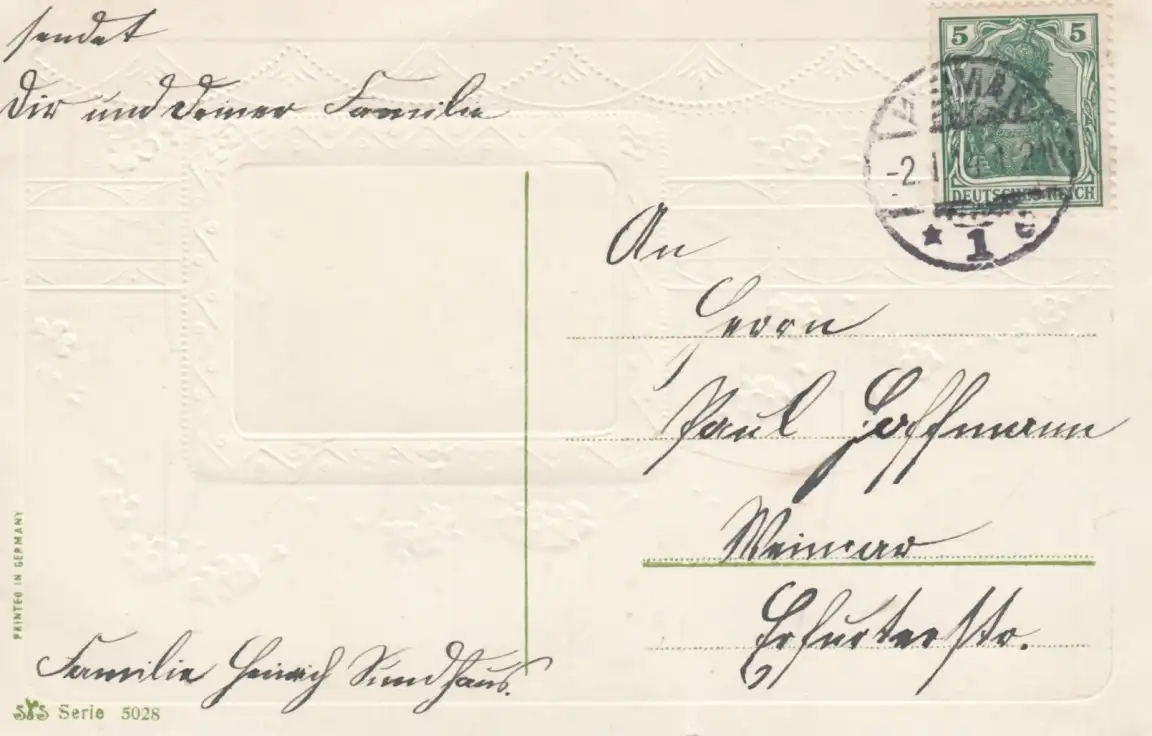 sendet
Dir und Deiner Familie
5 5
DEUTSCHES REICH
WEIMAR
-2.1.14.1-2N
* 1 c
An
Herrn
Paul Hoffmann
Weimar
Erfurterstr.
Familie Heinrich Sundhaus.
PRINTED IN GERMANY
SYS Serie 5028